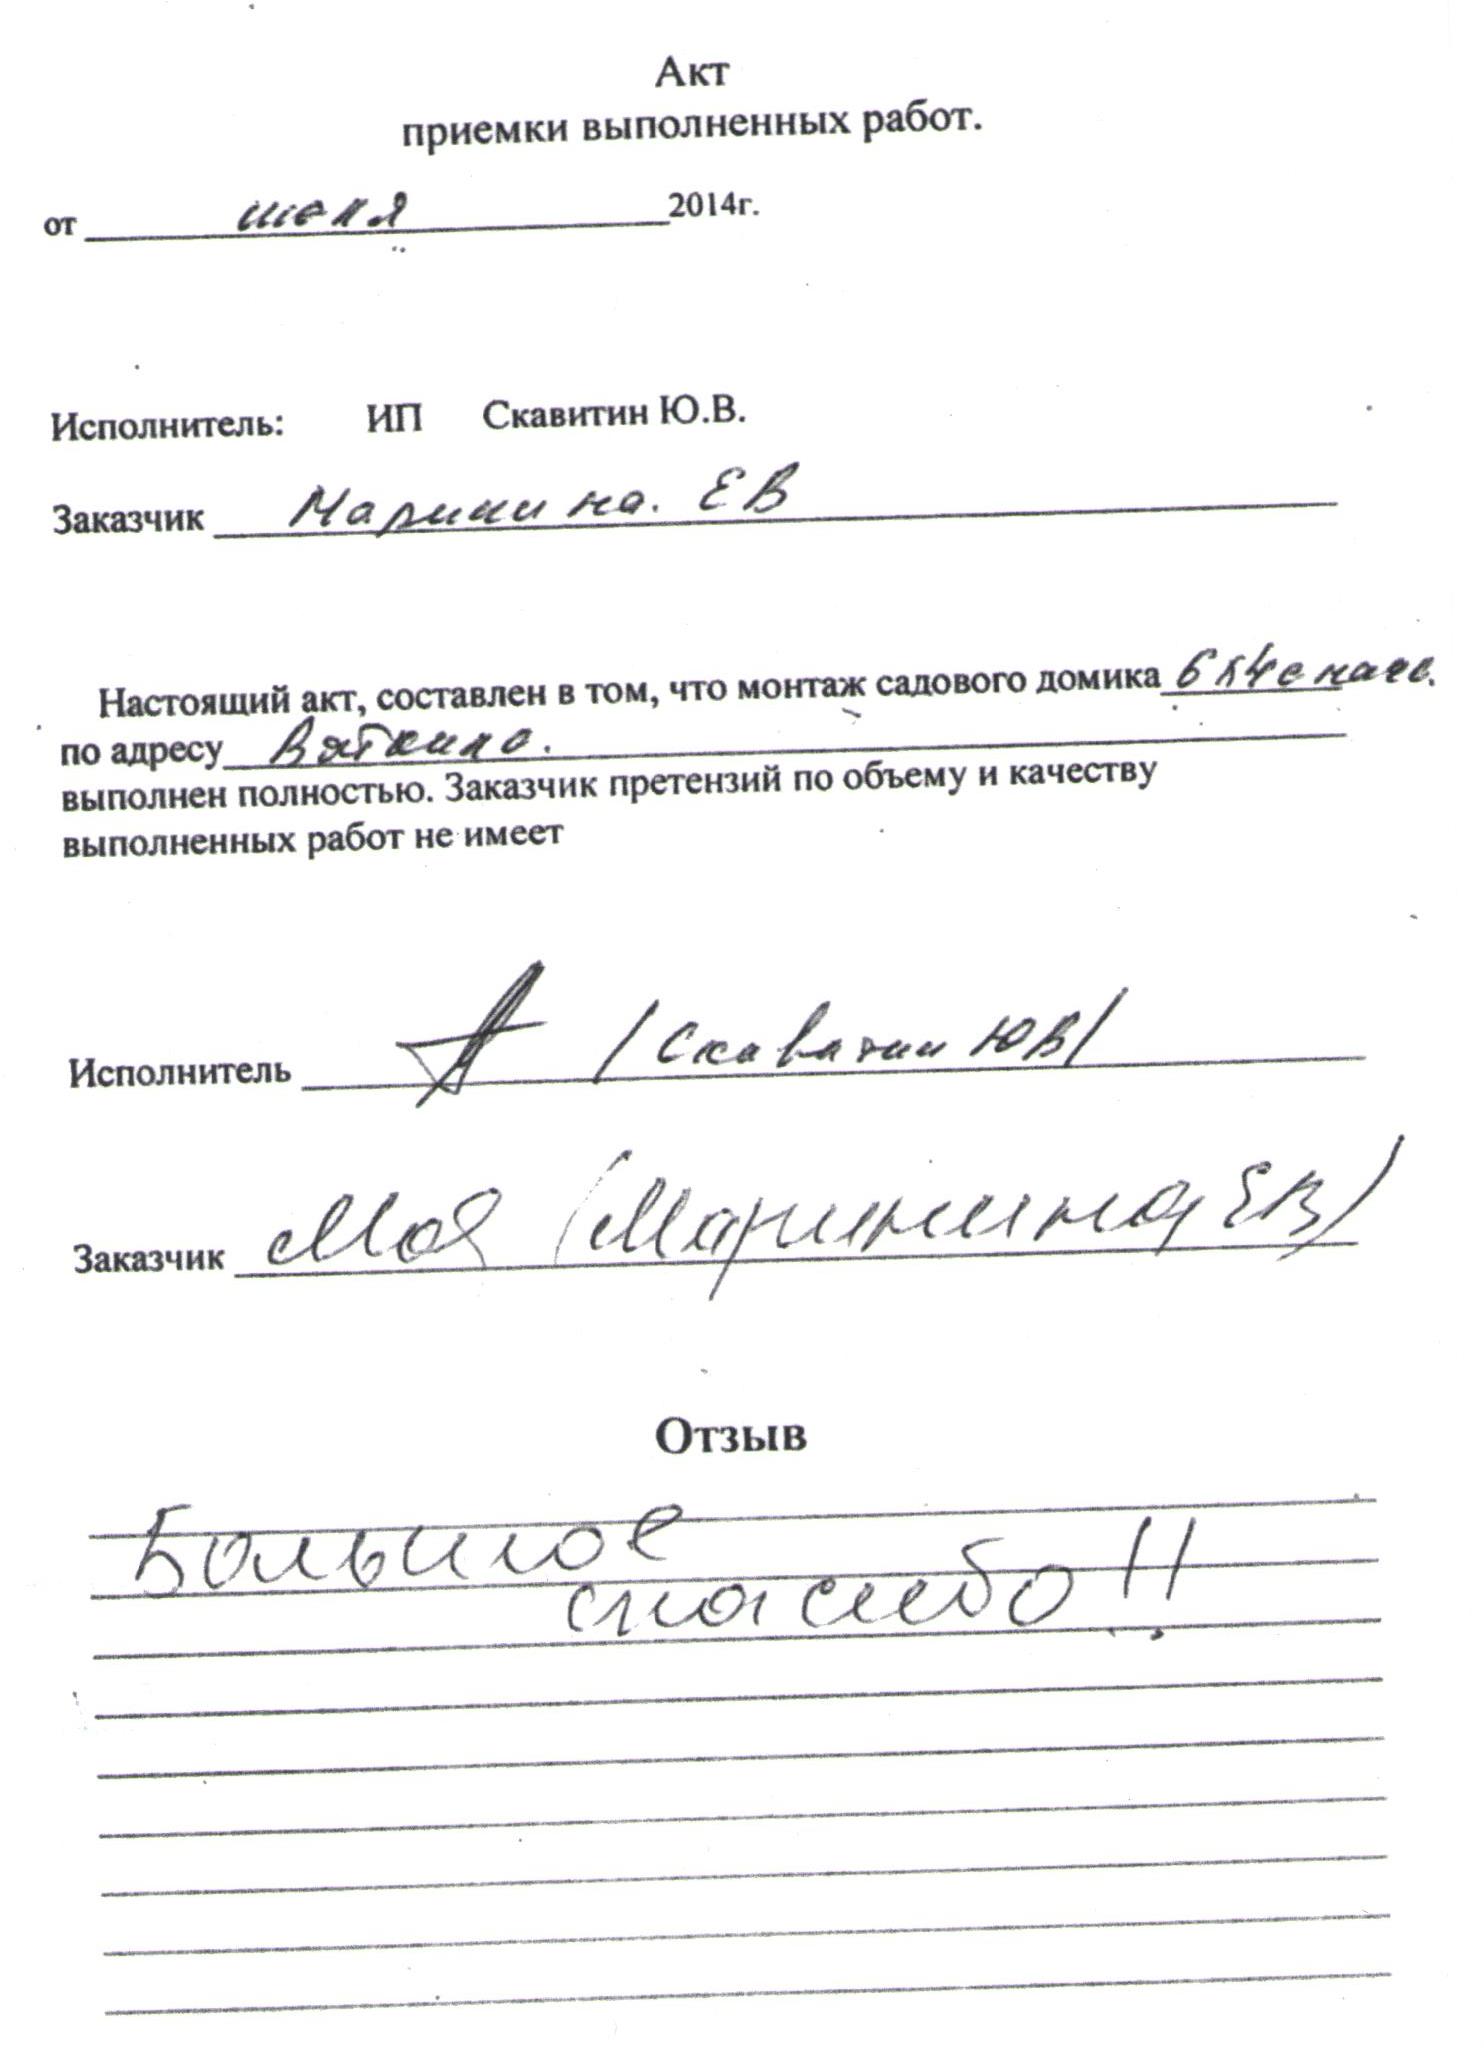 Акт
приемки выполненных работ.
от июня 2014г.
Исполнитель: ИП Скавитин Ю.В.
Заказчик Маринина. ЕВ
Настоящий акт, составлен в том, что монтаж садового домика 6х4 с
по адресу Вяткино.
выполнен полностью. Заказчик претензий по объему и качеству
выполненных работ не имеет
Исполнитель /Скавитин ЮВ/
Заказчик (Маринина ЕВ)
Отзыв
Большое
спасибо!!